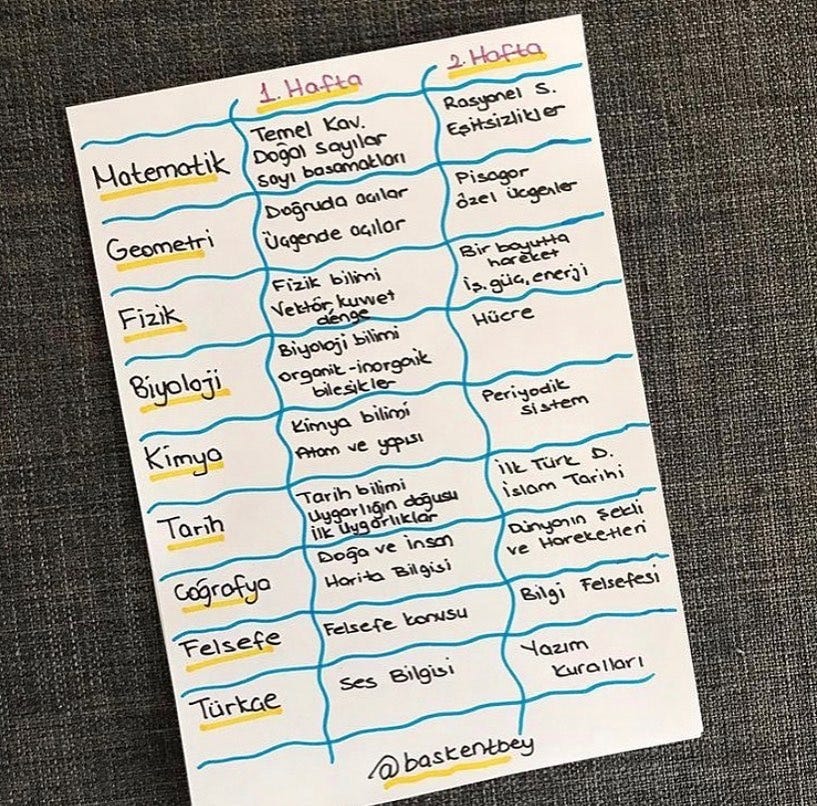 1. Hafta
2. Hafta
Matematik
Temel Kav.
Doğal Sayılar
Sayı basamakları
Rasyonel S.
Eşitsizlikler
Geometri
Doğruda açılar
Üçgende açılar
Pisagor
özel üçgenler
Fizik
Fizik bilimi
Vektör, kuvvet
denge
Bir boyutta
hareket
İş, güç, enerji
Biyoloji
Biyoloji bilimi
organik-inorganik
bileşikler
Hücre
Kimya
Kimya bilimi
Atom ve yapısı
Periyodik
sistem
Tarih
Tarih bilimi
Uygarlığın doğuşu
İlk Uygarlıklar
İlk Türk D.
İslam Tarihi
Coğrafya
Doğa ve İnsan
Harita Bilgisi
Dünyanın Şekli
ve Hareketleri
Felsefe
Felsefe konusu
Bilgi Felsefesi
Türkçe
Ses Bilgisi
Yazım
Kuralları
@baskentbey